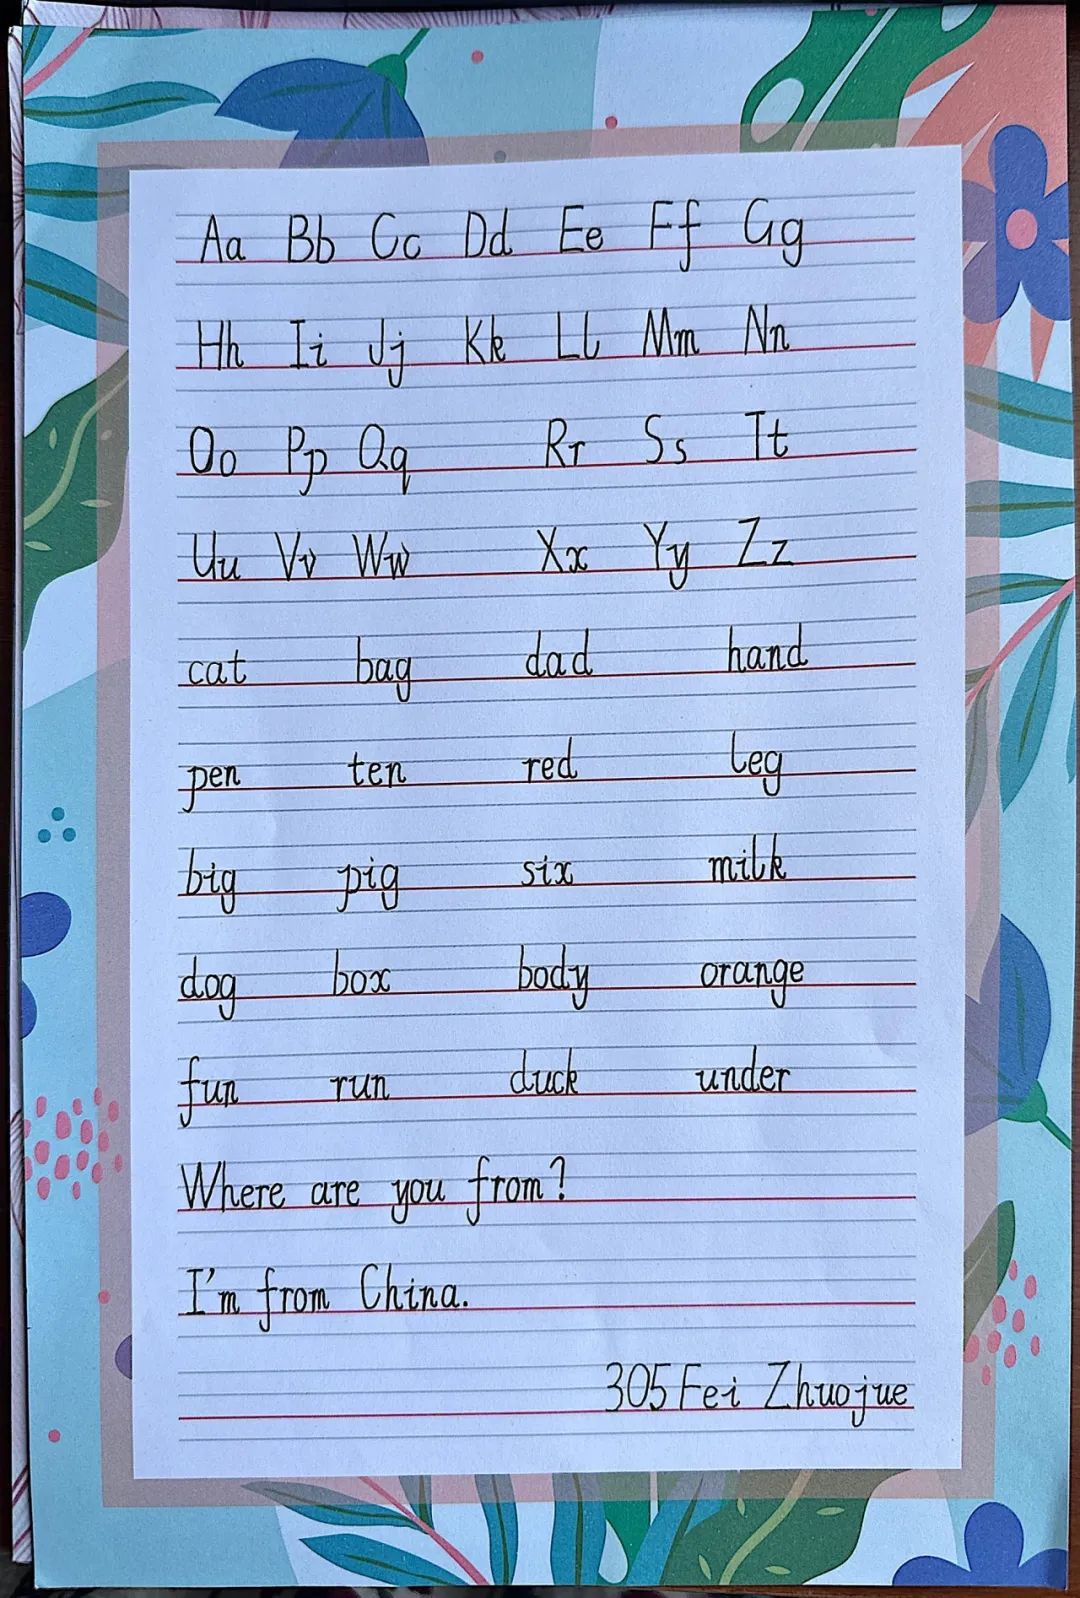 Aa Bb Cc Dd Ee Ff Gg
Hh Ii Jj Kk Ll Mm Nn
Oo Pp Qq Rr Ss Tt
Uu Vv Ww Xx Yy Zz
cat bag dad hand
pen ten red leg
big pig six milk
dog box body orange
fun run duck under
Where are you from?
I'm from China.
305 Fei Zhuojue